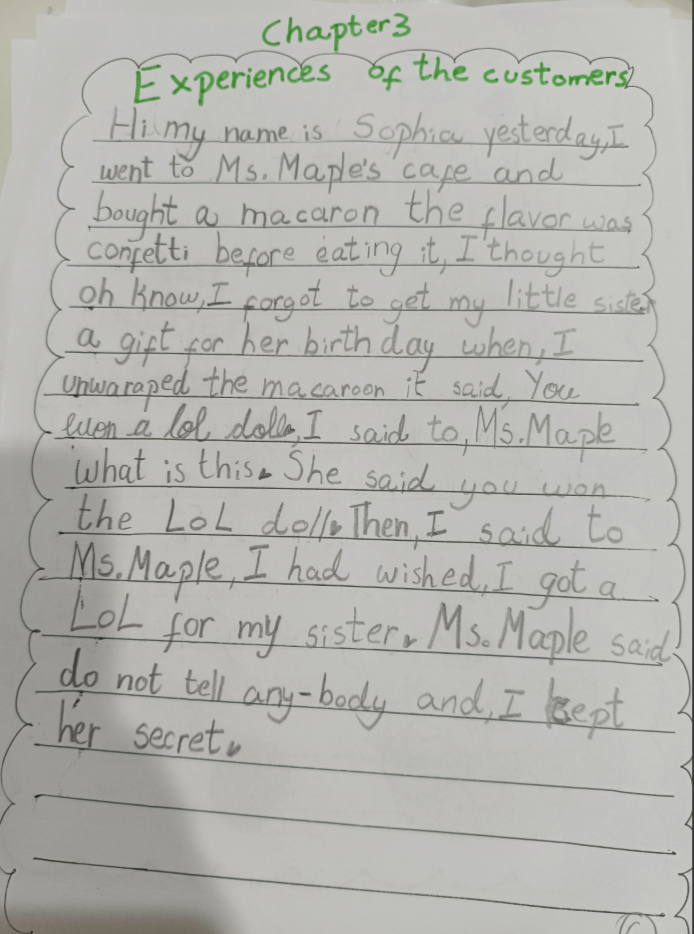 Chapter3
Experiences of the customers
Hi my name is Sophia yesterday,I
went to Ms.Maple's cafe and
bought a macaron the flavor was
confetti before eating it,I thought
oh know,I forgot to get my little sister
a gift for her birthday when,I
unwaraped the macaroon it said, You
won a lol doll.,I said to,Ms.Maple
what is this. She said you won
the LoL doll. Then,I said to
Ms.Maple,I had wished,I got a
LoL for my sister. Ms.Maple said
do not tell any-body and,I kept
her secret.